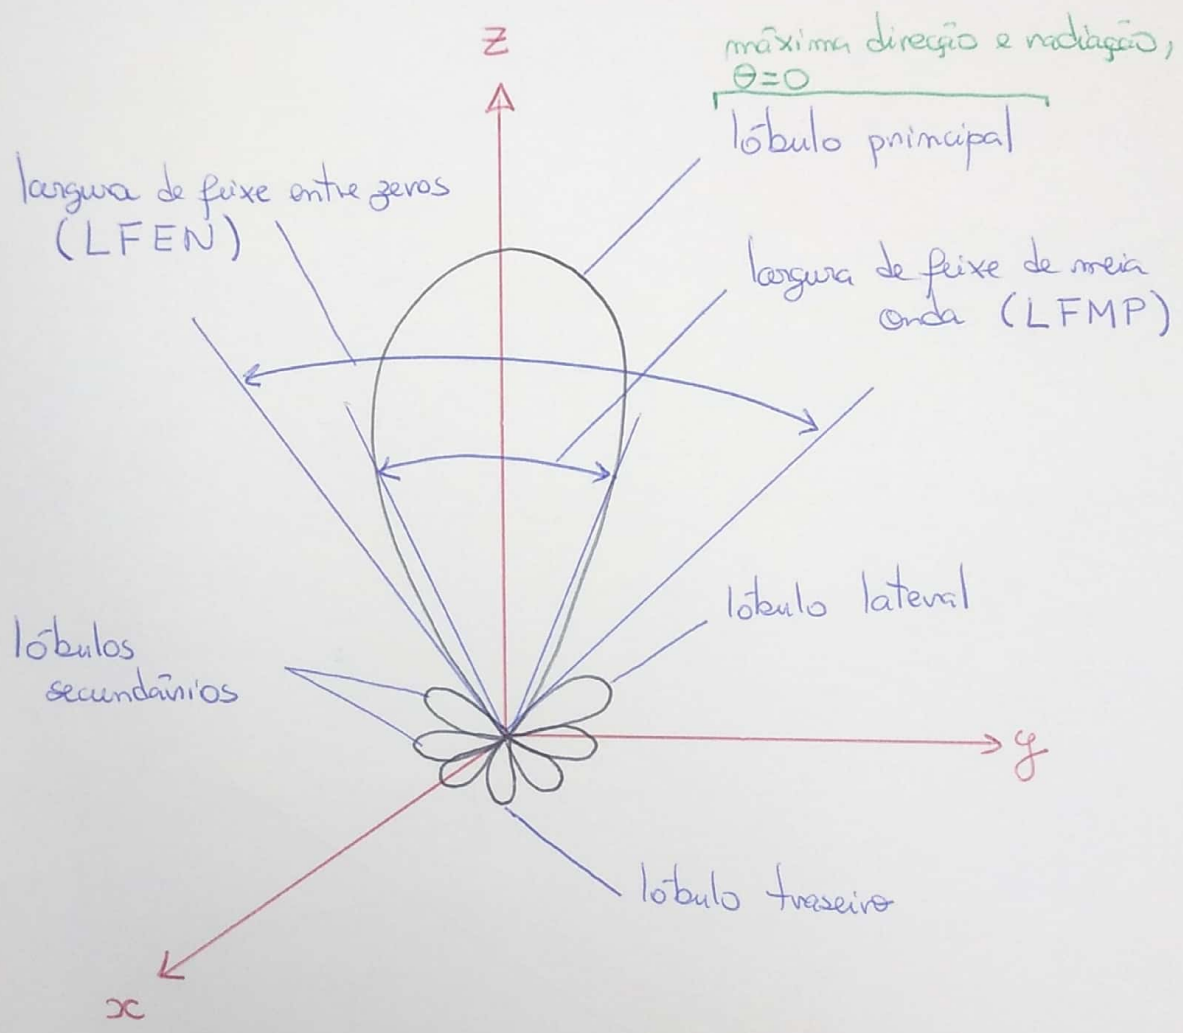 z
máxima direcção e radiação,
θ=0
lóbulo principal
largura de feixe entre zeros
(LFEN)
largura de feixe de meia
onda (LFMP)
lóbulo lateral
lóbulos
secundários
y
lóbulo traseiro
x